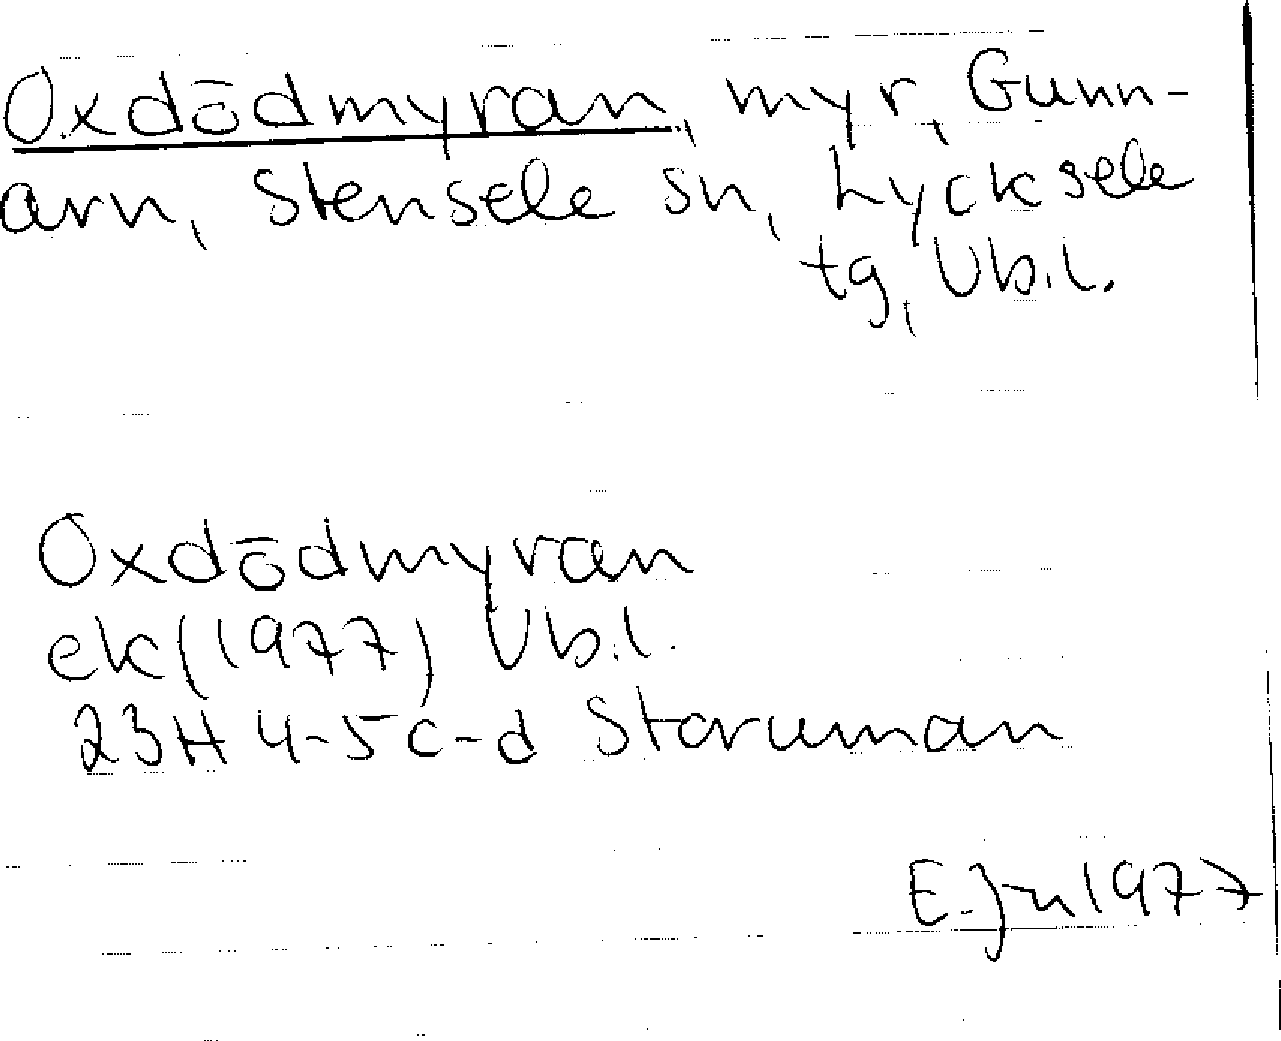 Oxdödmyran, myr, Gunn-
arn, Stensele sn, Lycksele
tg, Vb.l.
Oxdödmyran
ek(1977) Vb.l.
23H 4-5c-d Storuman
E. Jn 1977